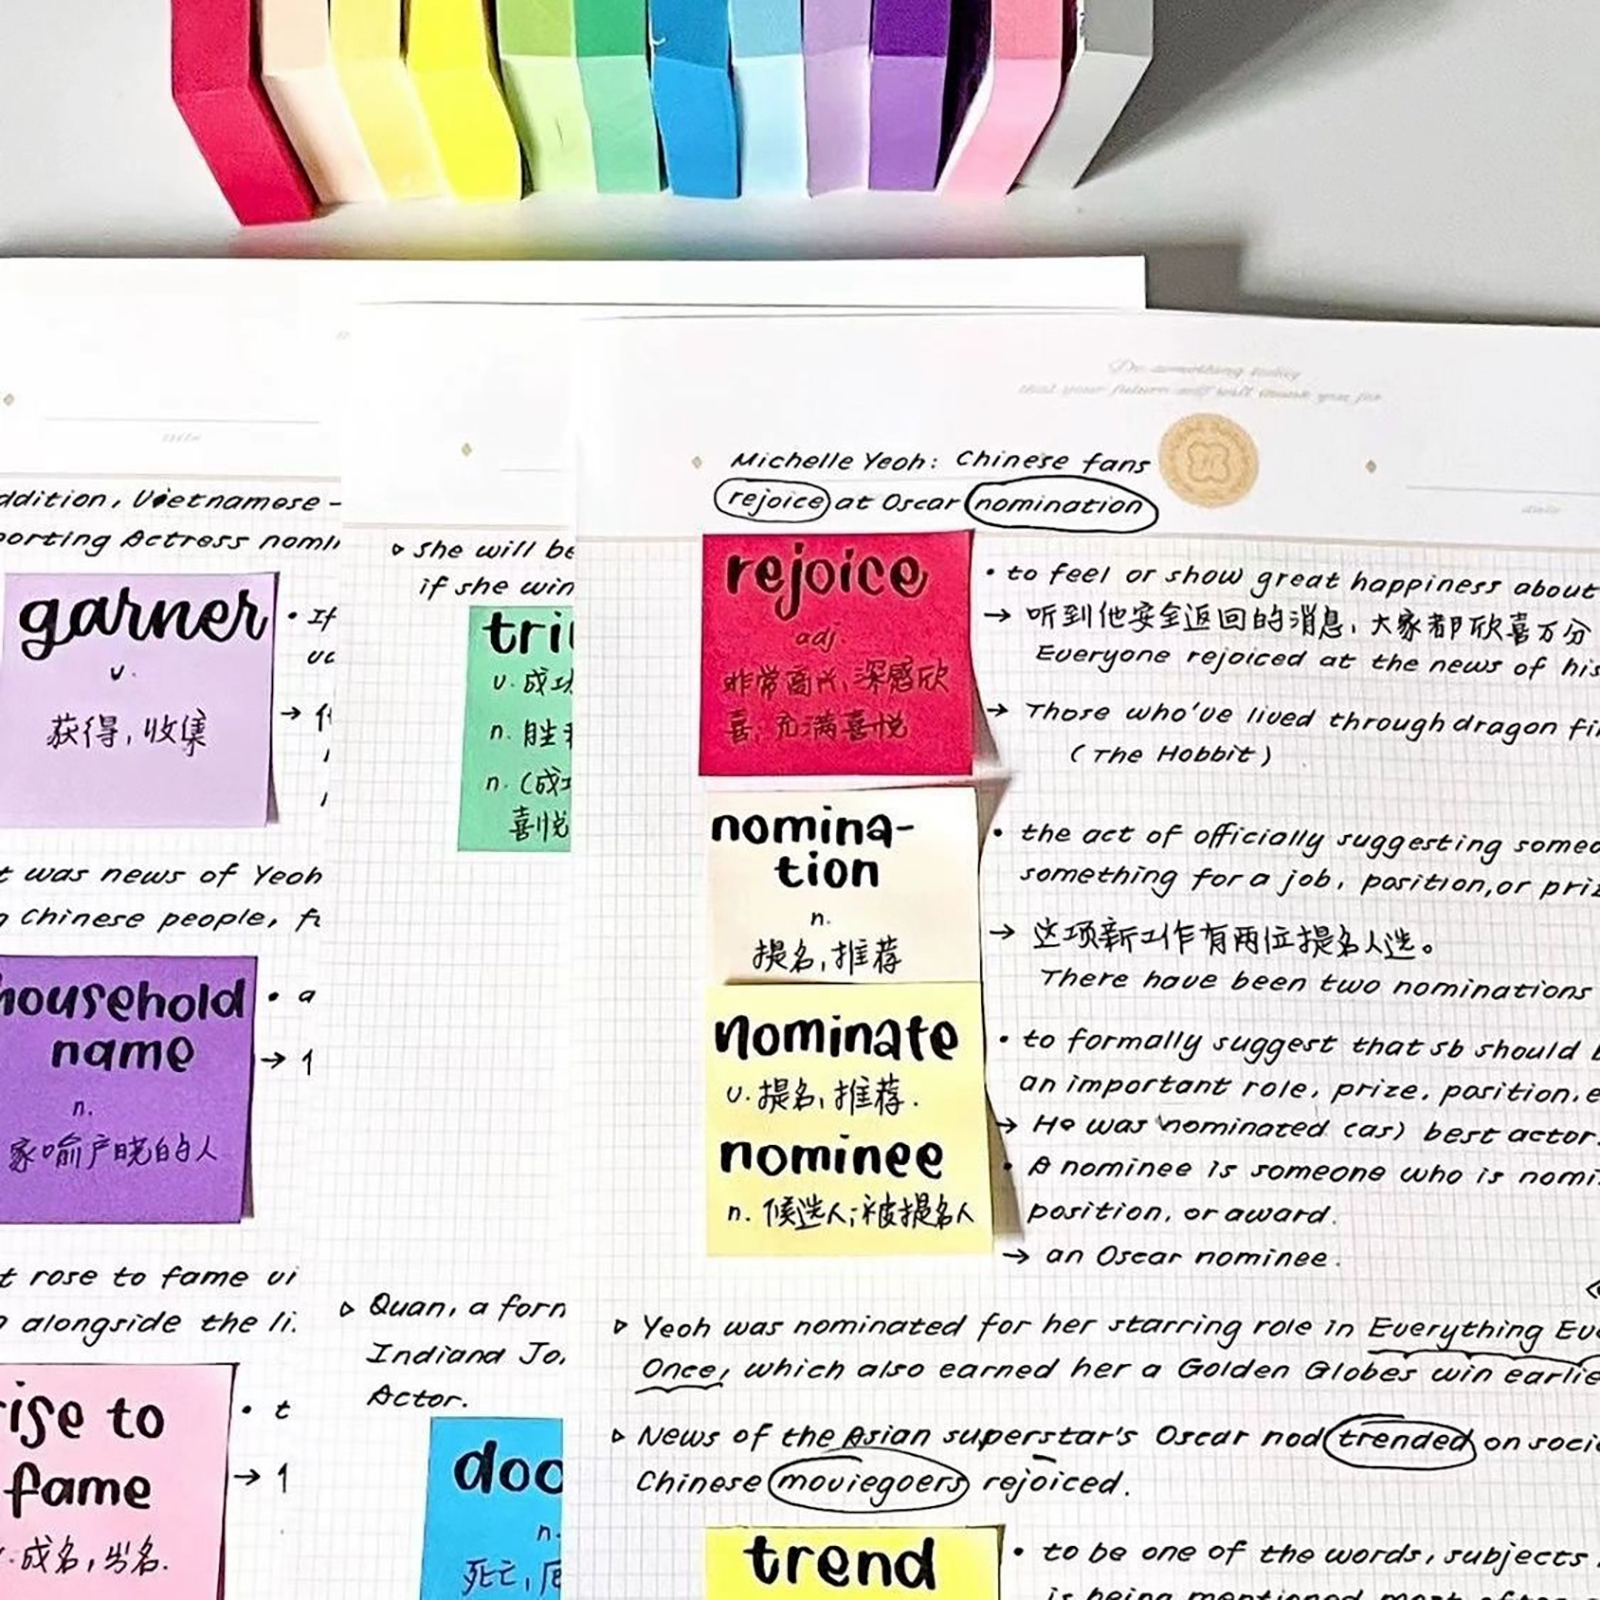 Michelle Yeoh: Chinese fans
rejoice at Oscar nomination
rejoice
adj.
非常高兴,深感欣
喜;充满喜悦
• to feel or show great happiness about
→ 听到他安全返回的消息,大家都欣喜万分
Everyone rejoiced at the news of his
→ Those who've lived through dragon
(The Hobbit)
nomina-
tion
n.
提名,推荐
• the act of officially suggesting
something for a job, position, or
→ 这项新工作有两位提名人选。
There have been two nominations
nominate
v. 提名,推荐.
• to formally suggest that sb should
an important role, prize, position,
→ He was nominated (as) best actor.
nominee
n. 候选人;被提名人
• A nominee is someone who is
position, or award.
→ an Oscar nominee.
▹ Yeoh was nominated for her starring role in Everything
Once, which also earned her a Golden Globes win
▹ News of the Asian superstar's Oscar nod trended on
Chinese moviegoers rejoiced.
trend
• to be one of the words, subjects
is being mentioned most often
▹ She will be
if she win
v. 成功
n. 胜利
n. (成功
喜悦
▹ Quan, a
Indiana
Actor.
n.
死亡,
Vietnamese -
Actress
garner
v.
获得,收集
• If
was news of Yeoh
Chinese people,
household
name
n.
家喻户晓的人
• a
rose to fame
alongside the
rise to
fame
成名,出名.